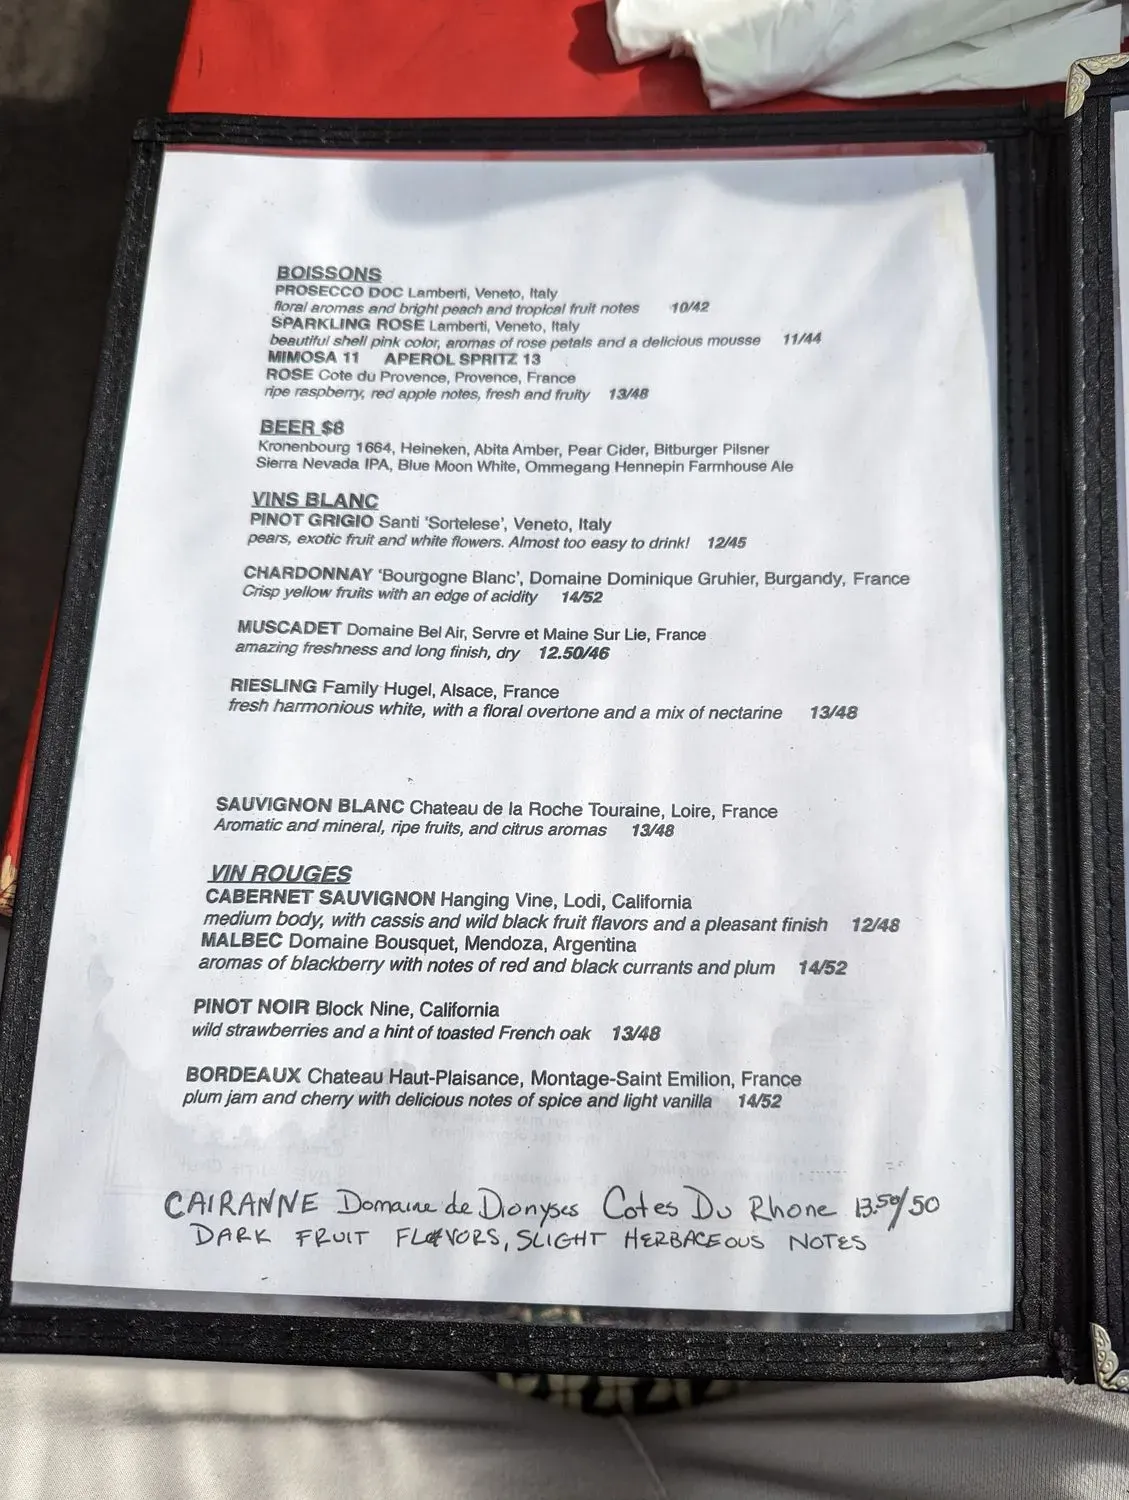 BOISSONS
PROSECCO DOC Lamberti, Veneto, Italy
floral aromas and bright peach and tropical fruit notes 10/42
SPARKLING ROSE Lamberti, Veneto, Italy
beautiful shell pink color, aromas of rose petals and a delicious mousse 11/44
MIMOSA 11 APEROL SPRITZ 13
ROSE Cote du Provence, Provence, France
ripe raspberry, red apple notes, fresh and fruity 13/48
BEER $8
Kronenbourg 1664, Heineken, Abita Amber, Pear Cider, Bitburger Pilsner
Sierra Nevada IPA, Blue Moon White, Ommegang Hennepin Farmhouse Ale
VINS BLANC
PINOT GRIGIO Santi 'Sortelese', Veneto, Italy
pears, exotic fruit and white flowers. Almost too easy to drink! 12/45
CHARDONNAY 'Bourgogne Blanc', Domaine Dominique Gruhier, Burgandy, France
Crisp yellow fruits with an edge of acidity 14/52
MUSCADET Domaine Bel Air, Servre et Maine Sur Lie, France
amazing freshness and long finish, dry 12.50/46
RIESLING Family Hugel, Alsace, France
fresh harmonious white, with a floral overtone and a mix of nectarine 13/48
SAUVIGNON BLANC Chateau de la Roche Touraine, Loire, France
Aromatic and mineral, ripe fruits, and citrus aromas 13/48
VIN ROUGES
CABERNET SAUVIGNON Hanging Vine, Lodi, California
medium body, with cassis and wild black fruit flavors and a pleasant finish 12/48
MALBEC Domaine Bousquet, Mendoza, Argentina
aromas of blackberry with notes of red and black currants and plum 14/52
PINOT NOIR Block Nine, California
wild strawberries and a hint of toasted French oak 13/48
BORDEAUX Chateau Haut-Plaisance, Montage-Saint Emilion, France
plum jam and cherry with delicious notes of spice and light vanilla 14/52
CAIRANNE Domaine de Dionyses Cotes Du Rhone 13.50/50
DARK FRUIT FLAVORS, SLIGHT HERBACEOUS NOTES